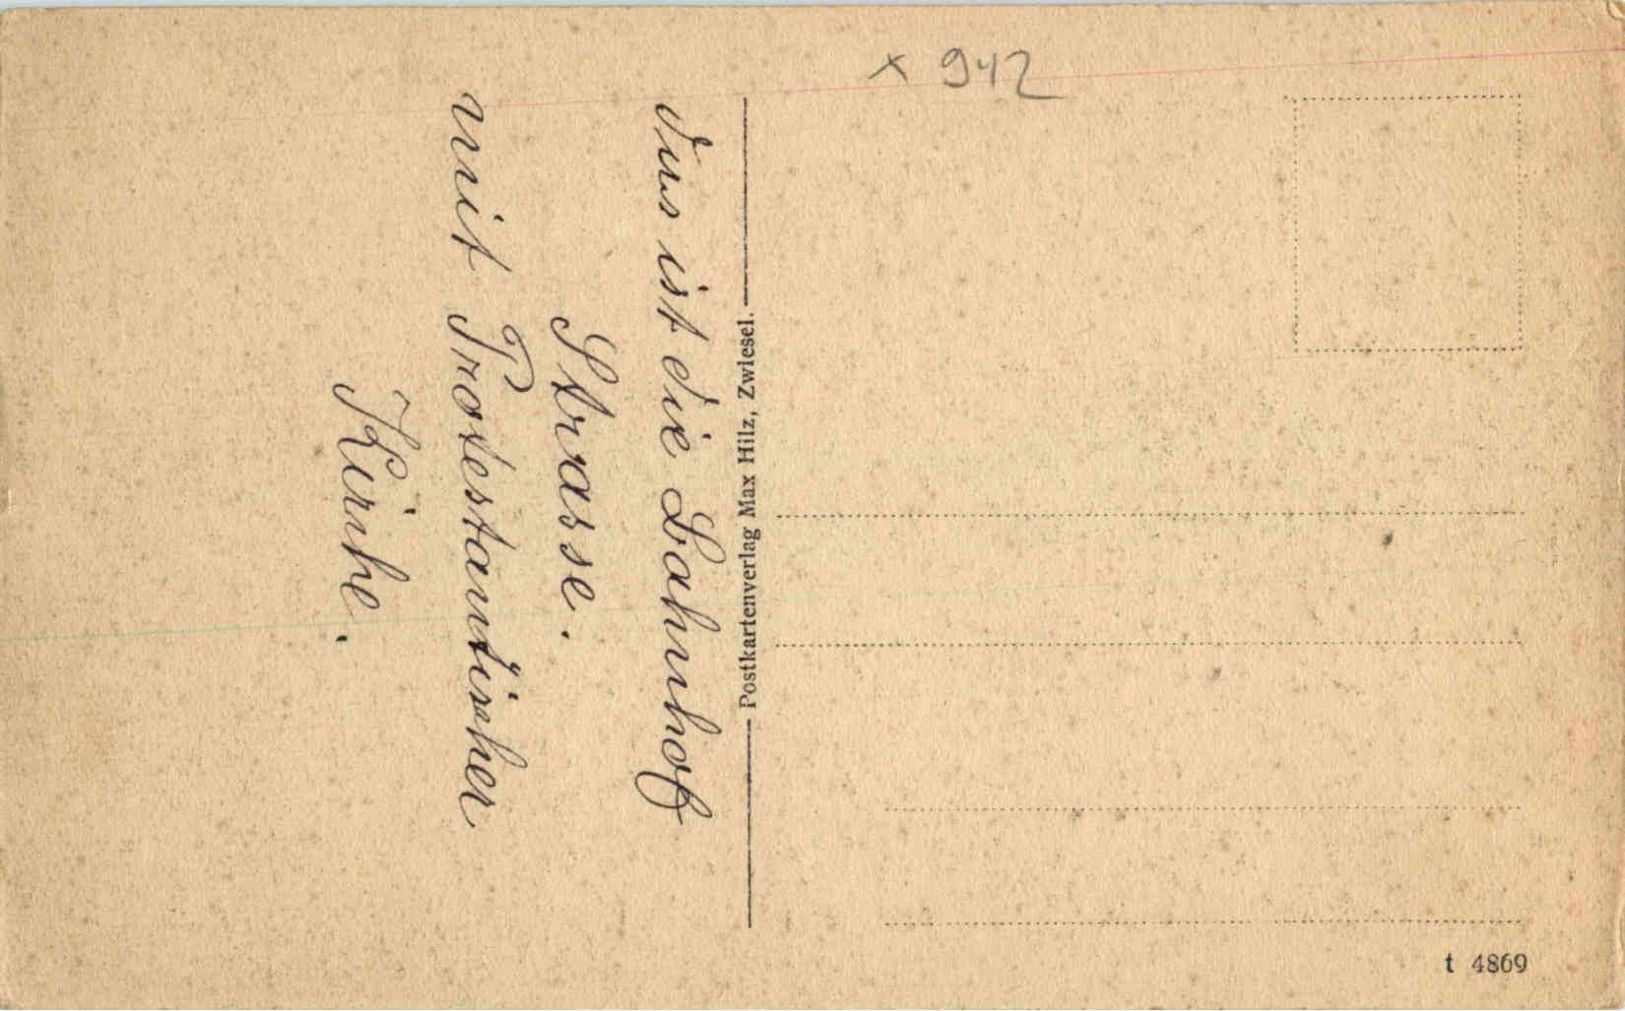 x 942
Das ist die Bahnhof
Strasse.
mit Protestantischer
Kirche.
Postkartenverlag Max Hilz, Zwiesel.
t 4869